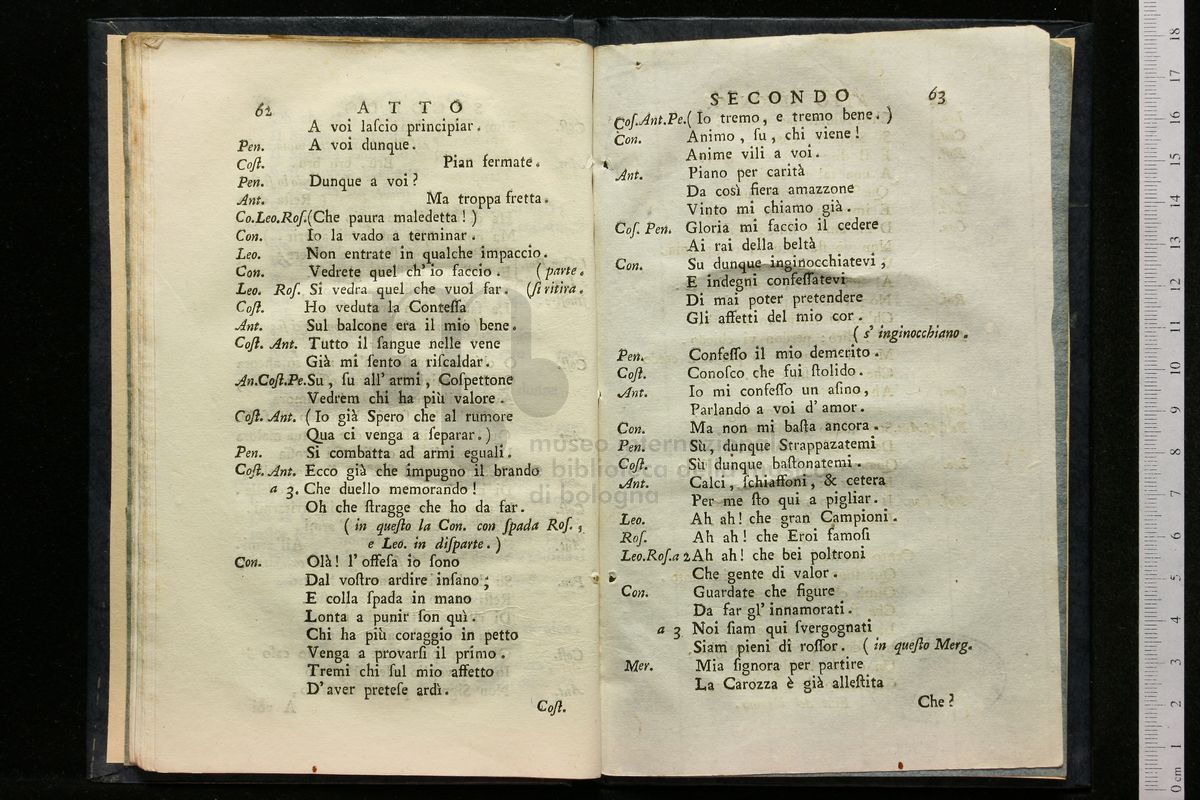 62 ATTO
A voi laſcio principiar.
Pen. A voi dunque.
Coſt. Pian fermate.
Pen. Dunque a voi?
Ant. Ma troppa fretta.
Co.Leo.Roſ.(Che paura maledetta!)
Con. Io la vado a terminar.
Leo. Non entrate in qualche impaccio.
Con. Vedrete quel ch'io faccio. (parte.
Leo. Roſ. Si vedra quel che vuol far. (ſi ritira.
Coſt. Ho veduta la Conteſſa
Ant. Sul balcone era il mio bene.
Coſt. Ant. Tutto il ſangue nelle vene
Già mi ſento a riſcaldar.
An.Coſt.Pe.Su, ſu all'armi, Coſpettone
Vedrem chi ha più valore.
Coſt. Ant. (Io già Spero che al rumore
Qua ci venga a ſeparar.)
Pen. Si combatta ad armi eguali.
Coſt. Ant. Ecco già che impugno il brando
a 3. Che duello memorando!
Oh che ſtragge che ho da far.
(in queſto la Con. con ſpada Roſ.,
e Leo. in diſparte.)
Con. Olà! l'offeſa io ſono
Dal voſtro ardire inſano;
E colla ſpada in mano
Lonta a punir ſon quì.
Chi ha più coraggio in petto
Venga a provarſi il primo.
Tremi chi ſul mio affetto
D'aver preteſe ardì.
Coſt.
SECONDO 63
Coſ.Ant.Pe.(Io tremo, e tremo bene.)
Con. Animo, ſu, chi viene!
Anime vili a voi.
Ant. Piano per carità
Da così fiera amazzone
Vinto mi chiamo già.
Coſ. Pen. Gloria mi faccio il cedere
Ai rai della beltà
Con. Su dunque inginocchiatevi,
E indegni confeſſatevi
Di mai poter pretendere
Gli affetti del mio cor.
(s'inginocchiano.
Pen. Confeſſo il mio demerito.
Coſt. Conoſco che fui ſtolido.
Ant. Io mi confeſſo un aſino,
Parlando a voi d'amor.
Con. Ma non mi baſta ancora.
Pen. Sù, dunque Strappazatemi
Coſt. Sù dunque baſtonatemi.
Ant. Calci, ſchiaffoni, & cetera
Per me ſto qui a pigliar.
Leo. Ah ah! che gran Campioni.
Roſ. Ah ah! che Eroi famoſi
Leo.Roſ.a 2 Ah ah! che bei poltroni
Che gente di valor.
Con. Guardate che figure
Da far gl'innamorati.
a 3 Noi ſiam qui ſvergognati
Siam pieni di roſſor. (in queſto Merg.
Mer. Mia ſignora per partire
La Carozza è già alleſtita
Che?
museo internazionale
e biblioteca della musica
di bologna
0 cm 1 2 3 4 5 6 7 8 9 10 11 12 13 14 15 16 17 18